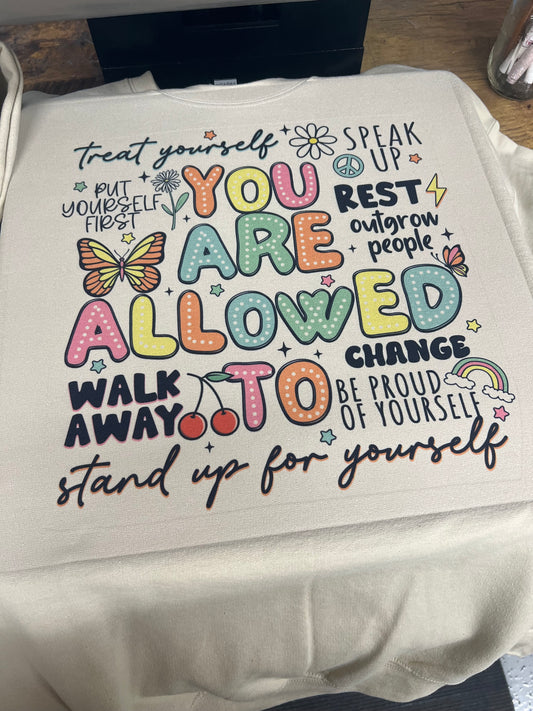 treat yourself
SPEAK
UP
PUT
YOURSELF
FIRST
YOU
REST
outgrow
people
ARE
ALLOWED
WALK
AWAY
TO
CHANGE
BE PROUD
OF YOURSELF
stand up for yourself